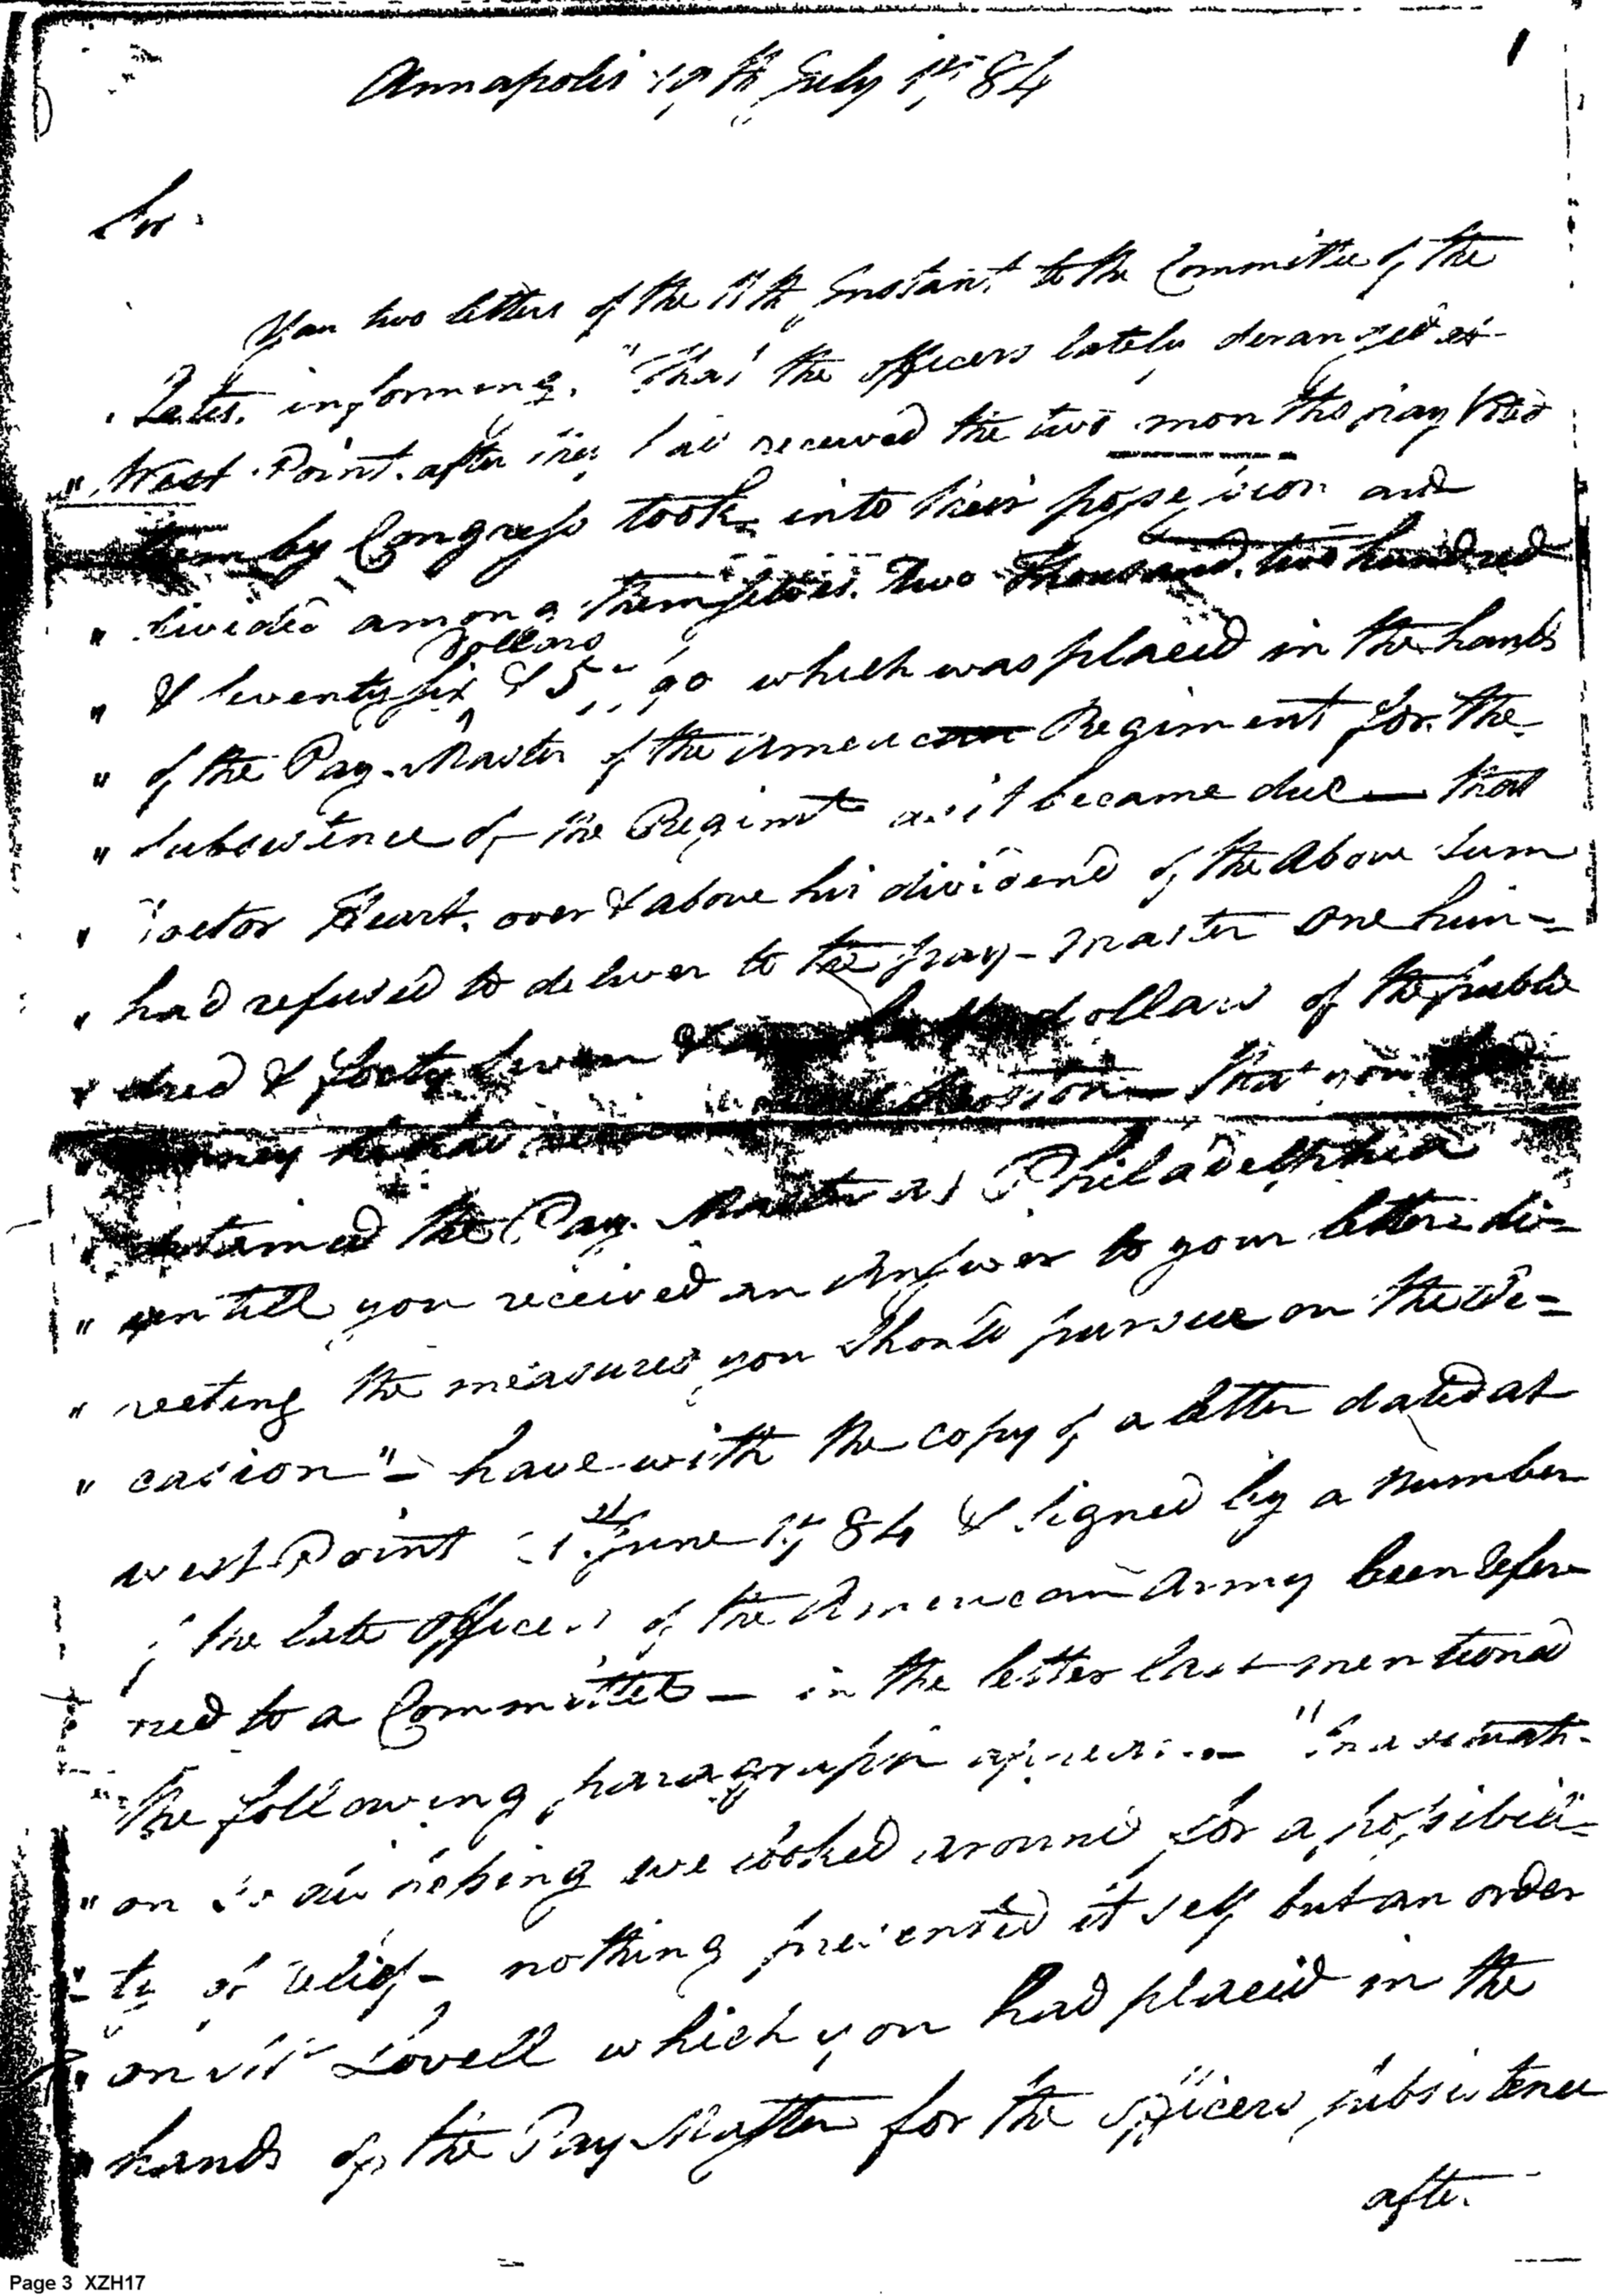 1
Annapolis 19th July 1784
Sir.
Your two letters of the 11th Instant to the Committee of the
States. informing. "That the officers lately deranged at
" West-Point. after they had received the two months pay Voted
them by Congress took into their possession and
" divided among themselves. Two Thousand. two hundred
Dollars
" & Seventy six & 5,, 90 which was placed in the hands
" of the Pay-Master of the American Regiment for the
" Subsistence of the Regimt as it became due — that
" Doctor Heart. over & above his dividend of the above Sum
" had refused to deliver to the pay-master One hun=
" dred & forty seven & dollars of the public
" money he had in possession — that you
" detained the Pay-Master at Philadelphia
" untill you received an Answer to your letters di=
" recting the measures you should pursue on the Oc=
" casion" — have with the copy of a letter dated at
West Point June 1784 & Signed by a number
of the late Officers of the American Army been refer
red to a Committee — in the letter last mentioned
the following paragraph appears — "In a situati-
" on so distressing we looked around for a possibili=
" ty of relief — nothing presented itself but an order
" on Mr Lovell which you had placed in the
" hands of the Pay Master for the officers subsistence
after
Page 3 XZH17